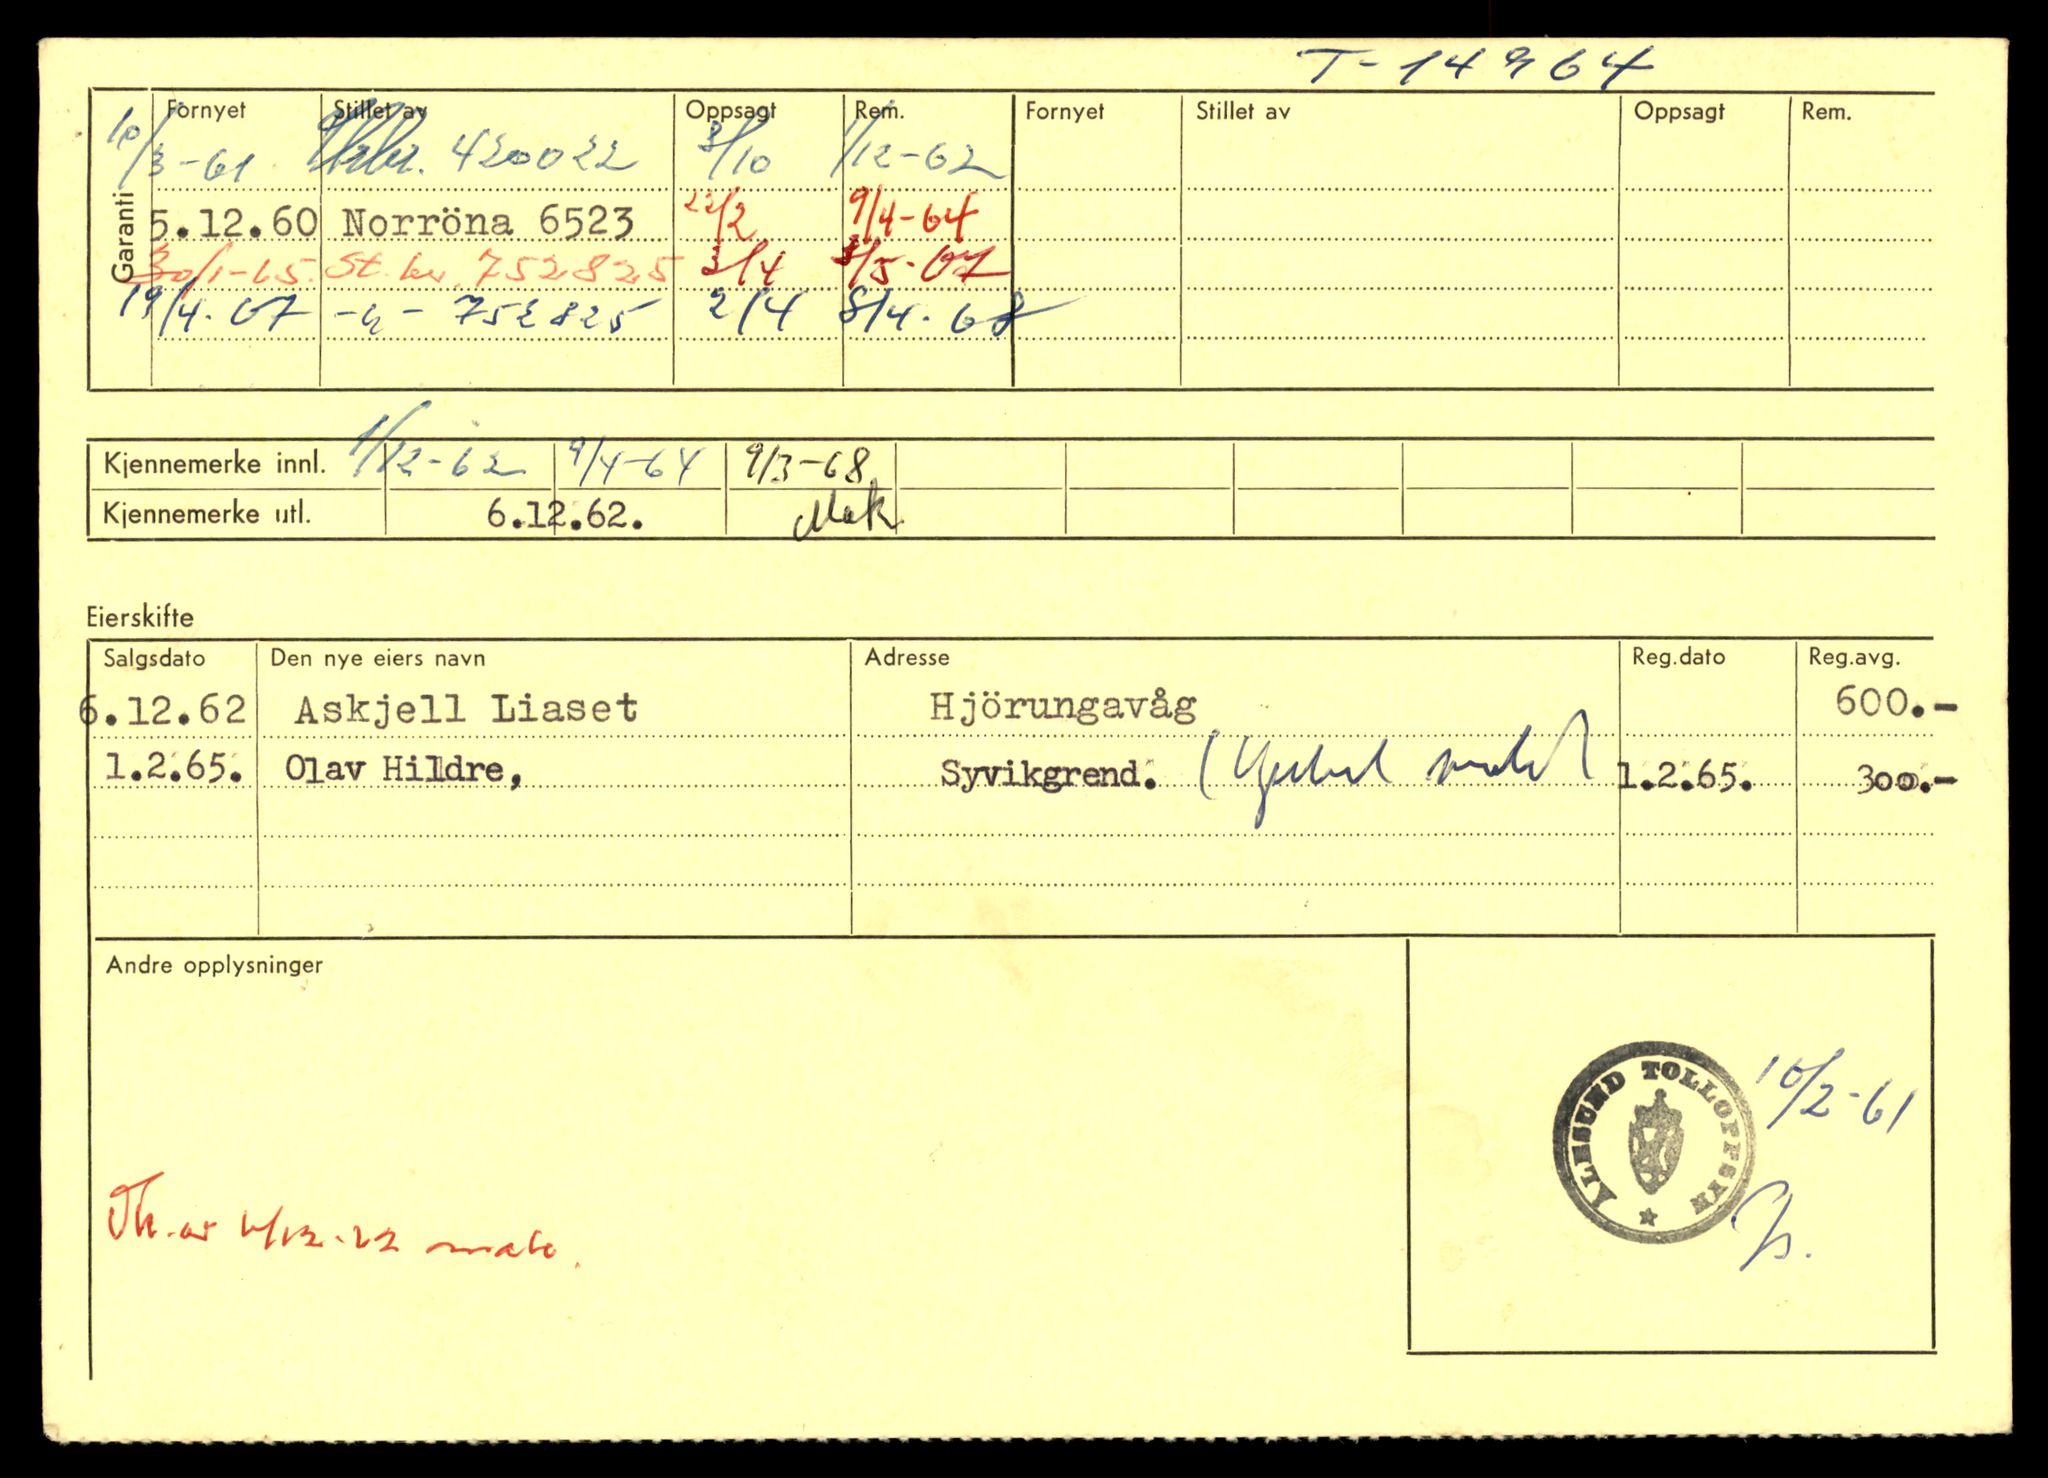 T-14964
Garanti
Fornyet Stillet av Oppsagt Rem. Fornyet Stillet av Oppsagt Rem.
10/3-61 420022 3/10 1/12-62
5.12.60 Norröna 6523 22/2 9/4-64
30/1-65. St.br. 752825 3/4 8/5-67
19/4-67 -"- 752825 2/4 8/4-68
Kjennemerke innl. 1/12-62 9/4-64 9/3-68
Kjennemerke utl. 6.12.62. Mak
Eierskifte
Salgsdato Den nye eiers navn Adresse Reg.dato Reg.avg.
6.12.62 Askjell Liaset Hjörungavåg 600.-
1.2.65. Olav Hildre, Syvikgrend. 1.2.65. 300.-
Andre opplysninger
ÅLESUND TOLLOPPSYN
10/2-61